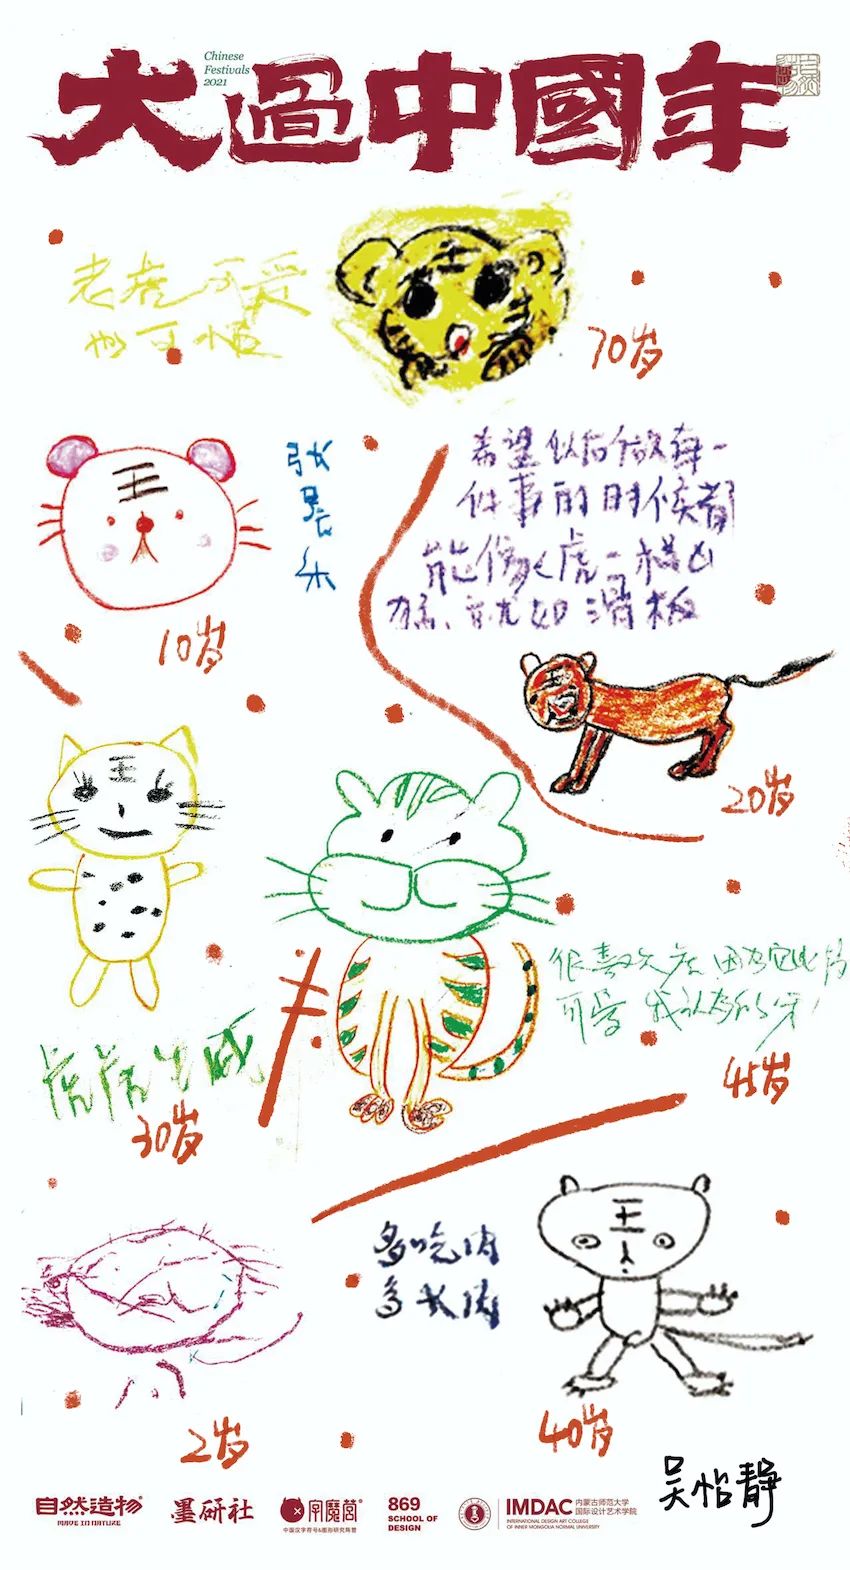 大過中國年
Chinese
Festivals
2021
老虎可爱
也可怕
70岁
王
张
晨
乐
10岁
希望以后做每一
件事的时候都
能像老虎一样凶
猛、就如滑板
20岁
王
虎虎生威
30岁
很喜欢虎 因为它比狗
可爱
45岁
2岁
多吃肉
多长肉
王
40岁
吴怡静
自然造物
MADE IN NATURE
墨研社
字魔营
中国汉字符号&图形研究阵营
869
SCHOOL OF
DESIGN
IMDAC
内蒙古师范大学
国际设计艺术学院
INTERNATIONAL DESIGN ART COLLEGE
OF INNER MONGOLIA NORMAL UNIVERSITY